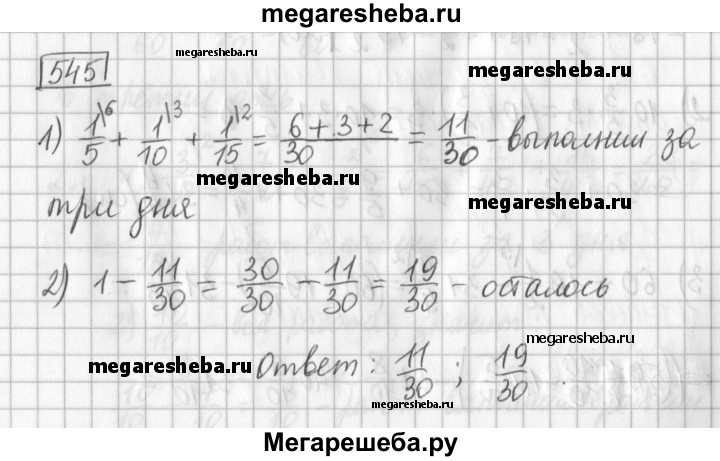 megaresheba.ru
545 megaresheba.ru
megaresheba.ru
1) 1/5\6 + 1/10\3 + 1/15\2 = (6+3+2)/30 = 11/30 - выполнил за
megaresheba.ru
три дня megaresheba.ru
2) 1 - 11/30 = 30/30 - 11/30 = 19/30 - осталось
megaresheba.ru
megaresheba.ru Ответ: 11/30 ; 19/30 .
megaresheba.ru
Мегарешеба.ру